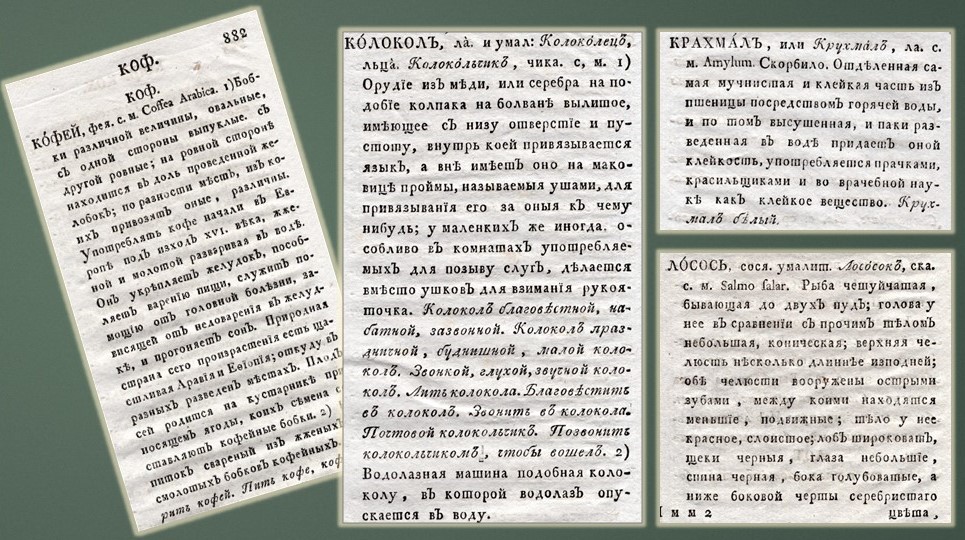 882
КОФ.
КОФ.
КО́ФЕЙ, фея. с. м. Coffea Arabica. 1) Боб-
ки различной величины, овальные,
съ одной стороны выпуклые. съ
другой ровные; на ровной сторонѣ
находится въ доль проведенной же-
лобокъ; по разности мѣстъ, изъ ко-
ихъ привозятъ оные, различны.
Употреблять кофе начали въ Ев-
ропѣ подъ изходъ XVI. вѣка, жже-
ной и молотой разваривая въ водѣ.
Онъ укрѣпляетъ желудокъ, пособ-
ляетъ варенію пищи, служитъ по-
мощію отъ головной болѣзни, за-
висящей отъ недоваренія въ желуд-
кѣ, и прогоняетъ сонъ. Природная
страна сего произрастенія есть ща-
стливая Аравія и Еѳіопія; откуду въ
разныхъ разведенъ мѣстахъ. Плодъ
сей родится на кустарникѣ
носящемъ ягоды, коихъ сѣмена
ставляютъ кофейные бобки. 2)
питокъ свареный изъ жженыхъ
смолотыхъ бобковъ кофейныхъ.
рить кофей. Пить кофе,
КО́ЛОКОЛЪ, ла̀. и умал: Колоко́лецъ,
льца̀. Колоко́льчикъ, чика. с, м. 1)
Орудіе изъ мѣди, или серебра на по-
добіе колпака на болванѣ вылитое,
имѣющее съ низу отверстіе и пу-
стоту, внутрь коей привязывается
языкъ, а внѣ имѣетъ оно на мако-
вицѣ проймы, называемыя ушами, для
привязыванія его за оныя къ чему
нибудь; у маленькихъ же иногда. о-
собливо въ комнатахъ употребляе-
мыхъ для позыву слугъ, дѣлается
вмѣсто ушковъ для взиманія рукоя-
точка. Колоколъ благовѣстной, на-
батной, зазвонной. Колоколъ праз-
дничной, буднишной, малой коло-
колъ. Звонкой, глухой, звучной коло-
колъ. Лить колокола. Благовѣстить
въ колоколъ. Звонить въ колокола.
Почтовой колокольчикъ. Позвонить
колокольчикомъ, чтобы вошелъ. 2)
Водолазная машина подобная коло-
колу, въ которой водолазъ опу-
скается въ воду.
КРАХМА́ЛЪ, или Крухма́лъ, ла. с.
м. Amylum. Скорбило. Отдѣленная са-
мая мучнистая и клейкая часть изъ
пшеницы посредствомъ горячей воды,
и по томъ высушенная, и паки раз-
веденная въ водѣ придаетъ оной
клейкость, употребляется прачками,
красильщиками и во врачебной нау-
кѣ какъ клейкое вещество. Крух-
малъ бѣлый.
ЛО́СОСЬ, сося. умалит. Лосо́сокъ, ска.
с. м. Salmo salar. Рыба чешуйчатая,
бывающая до двухъ пудъ; голова у
нее въ сравненіи съ прочимъ тѣломъ
небольшая, коническая; верхняя че-
люсть нѣсколько длиннѣе изподней;
обѣ челюсти вооружены острыми
зубами, между коими находятся
меньшіе, подвижные; тѣло у нее
красное, слоистое; лобъ широковатъ,
щеки черныя, глаза небольшіе,
спина черная, бока голубоватые, а
ниже боковой черты серебристаго
м м 2 цвѣта,